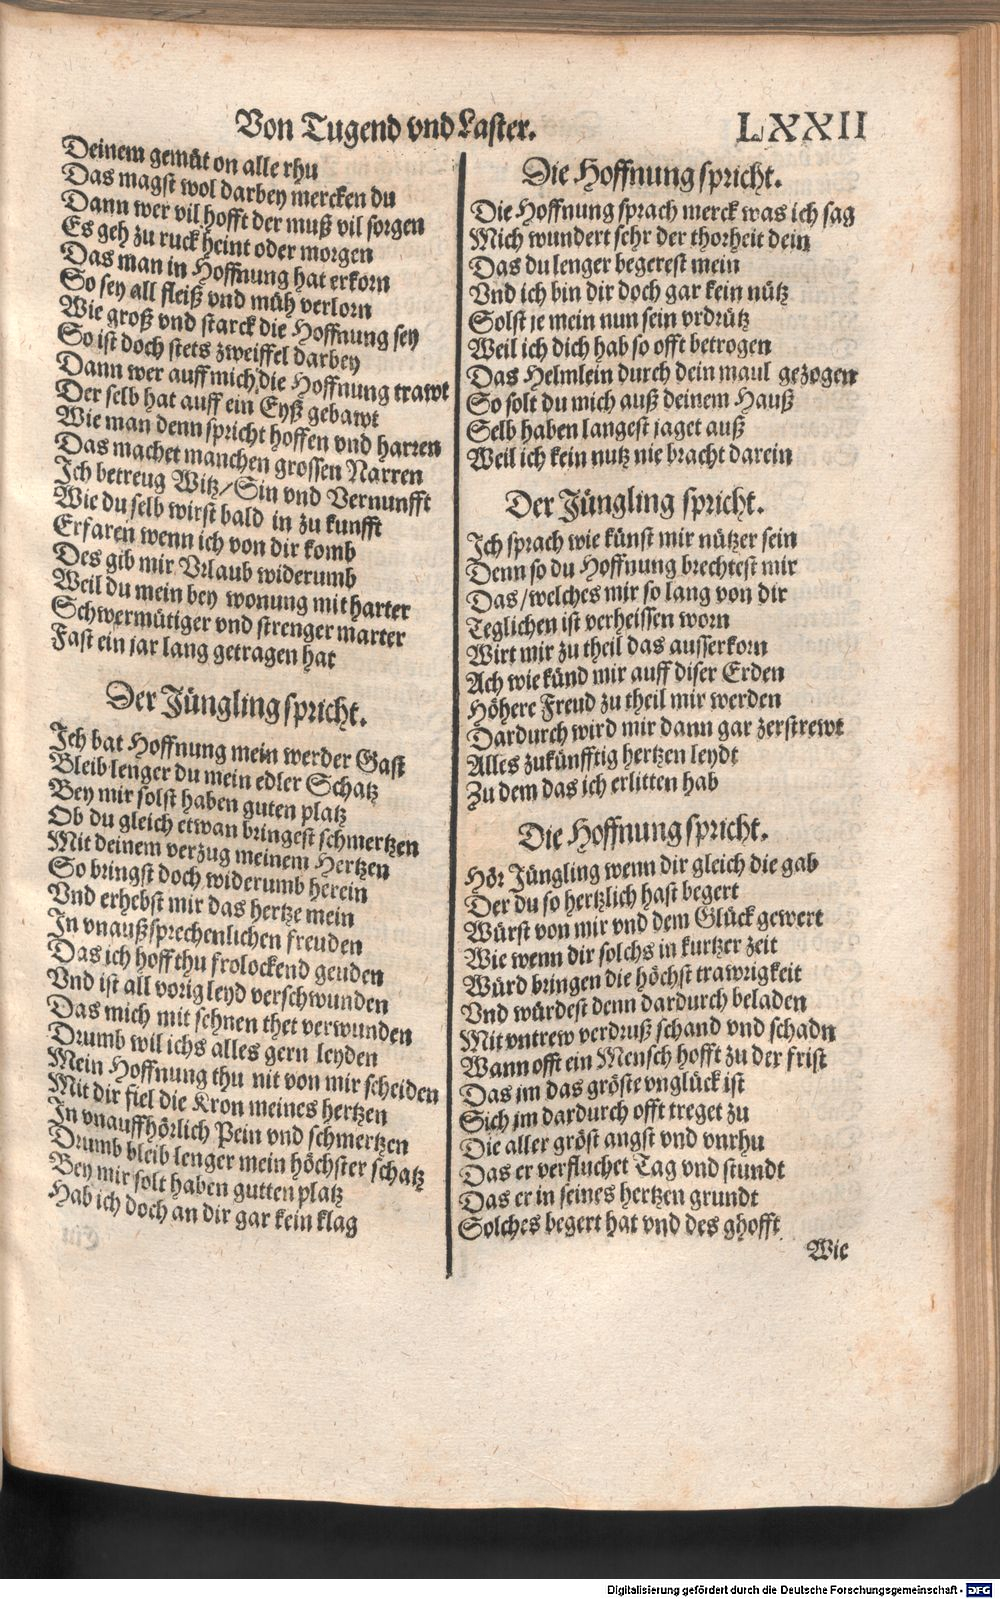 Von Tugend vnd Laster.
LXXII
Deinem gemüt on alle rhu
Das magst wol darbey mercken du
Dann wer vil hofft der muß vil sorgen
Es geh zu ruck heint oder morgen
Das man in Hoffnung hat erkorn
So sey all fleiß vnd müh verlorn
Wie groß vnd starck die Hoffnung sey
So ist doch stets zweiffel darbey
Dann wer auff mich die Hoffnung trawt
Der selb hat auff ein Eyß gebawt
Wie man denn spricht hoffen vnd harren
Das machet manchen grossen Narren
Ich betreug Witz/Sin vnd Vernunfft
Wie du selb wirst bald in zu kunfft
Erfaren wenn ich von dir komb
Des gib mir Vrlaub widerumb
Weil du mein bey wonung mit harter
Schwermütiger vnd strenger marter
Fast ein jar lang getragen hat
Der Jüngling spricht.
Ich bat Hoffnung mein werder Gast
Bleib lenger du mein edler Schatz
Bey mir solst haben guten platz
Ob du gleich etwan bringest schmertzen
Mit deinem verzug meinem Hertzen
So bringst doch widerumb herein
Vnd erhebst mir das hertze mein
In vnaußsprechenlichen freuden
Das ich hoff thu frolockend geuden
Vnd ist all vorig leyd verschwunden
Das mich mit sehnen thet verwunden
Drumb wil ichs alles gern leyden
Mein Hoffnung thu nit von mir scheiden
Mit dir fiel die Kron meines hertzen
In vnauffhörlich Pein vnd schmertzen
Drumb bleib lenger mein höchster schatz
Bey mir solt haben gutten platz
Hab ich doch an dir gar kein klag
Die Hoffnung spricht.
Die Hoffnung sprach merck was ich sag
Mich wundert sehr der thorheit dein
Das du lenger begerest mein
Vnd ich bin dir doch gar kein nütz
Solst je mein nun sein vrdrütz
Weil ich dich hab so offt betrogen
Das Helmlein durch dein maul gezogen
So solt du mich auß deinem Hauß
Selb haben langest jaget auß
Weil ich kein nutz nie bracht darein
Der Jüngling spricht.
Ich sprach wie künst mir nützer sein
Denn so du Hoffnung brechtest mir
Das/welches mir so lang von dir
Teglichen ist verheissen worn
Wirt mir zu theil das ausserkorn
Ach wie künd mir auff diser Erden
Höhere Freud zu theil mir werden
Dardurch wird mir dann gar zerstrewt
Alles zukünfftig hertzen leydt
Zu dem das ich erlitten hab
Die Hoffnung spricht.
Hör Jüngling wenn dir gleich die gab
Der du so hertzlich hast begert
Würst von mir vnd dem Glück gewert
Wie wenn dir solchs in kurtzer zeit
Würd bringen die höchst trawrigkeit
Vnd würdest denn dardurch beladen
Mit vntrew verdruß schand vnd schadn
Wann offt ein Mensch hofft zu der frist
Das jm das gröste vnglück ist
Sich jm dardurch offt treget zu
Die aller gröst angst vnd vnrhu
Das er verfluchet Tag vnd stundt
Das er in seines hertzen grundt
Solches begert hat vnd des ghofft
Wie
Digitalisierung gefördert durch die Deutsche Forschungsgemeinschaft - DFG